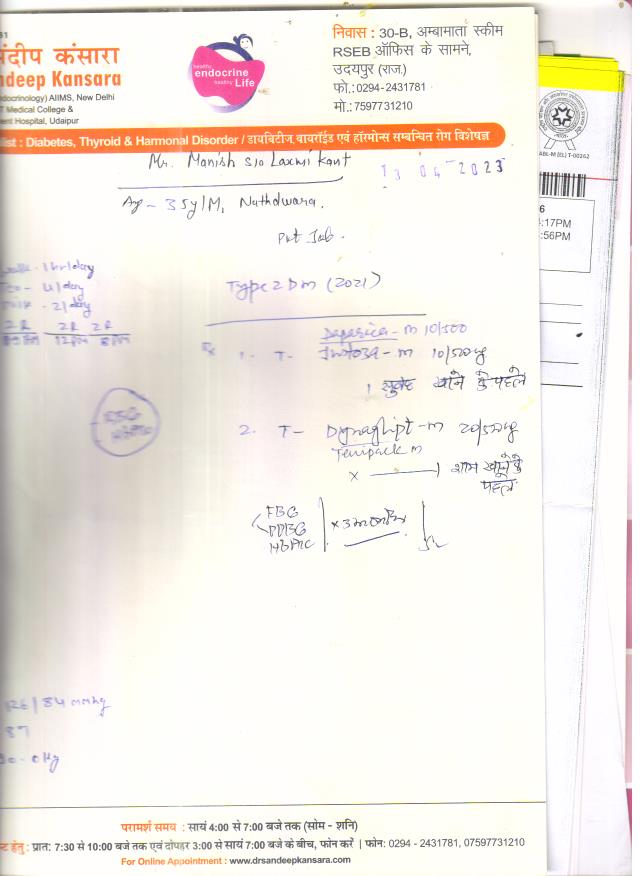 ंदीप कंसारा
ndeep Kansara
docrinology) AIIMS, New Delhi
Medical College &
ent Hospital, Udaipur
healthy
endocrine
healthy Life
निवास : 30-B, अम्बामाता स्कीम
RSEB ऑफिस के सामने,
उदयपुर (राज.)
फो.:0294-2431781
मो.:7597731210
list : Diabetes, Thyroid & Harmonal Disorder / डायबिटीज, थायरॉईड एवं हॉरमोन्स सम्बन्धित रोग विशेषज्ञ
Mr. Manish S/o Laxmi Kant
13 04 2023
Age - 35y/M, Nathdwara.
Pvt Job.
walk - 1hr/day
Tea - 4/day
milk - 2/day
2R 2R 2R
12PM 8PM
Type 2 DM (2021)
Dapasica - M 10/500
Rx 1. T- - M 10/500mg
1 सुबह खाने के पहले
RBG
HbA1c
2. T- Dynaglipt - M 20/500mg
Tenipack M
x 1 शाम खाने के
पहले
FBG
PPBG
HbA1c
x 3 months
126/84 mmHg
87
0-0 Kg
ABL-M (EL) T-00262
6
4:17PM
:56PM
परामर्श समय : सायं 4:00 से 7:00 बजे तक (सोम - शनि)
ट हेतु : प्रात: 7:30 से 10:00 बजे तक एवं दोपहर 3:00 से सायं 7:00 बजे के बीच, फोन करें | फोन: 0294 - 2431781, 07597731210
For Online Appointment : www.drsandeepkansara.com